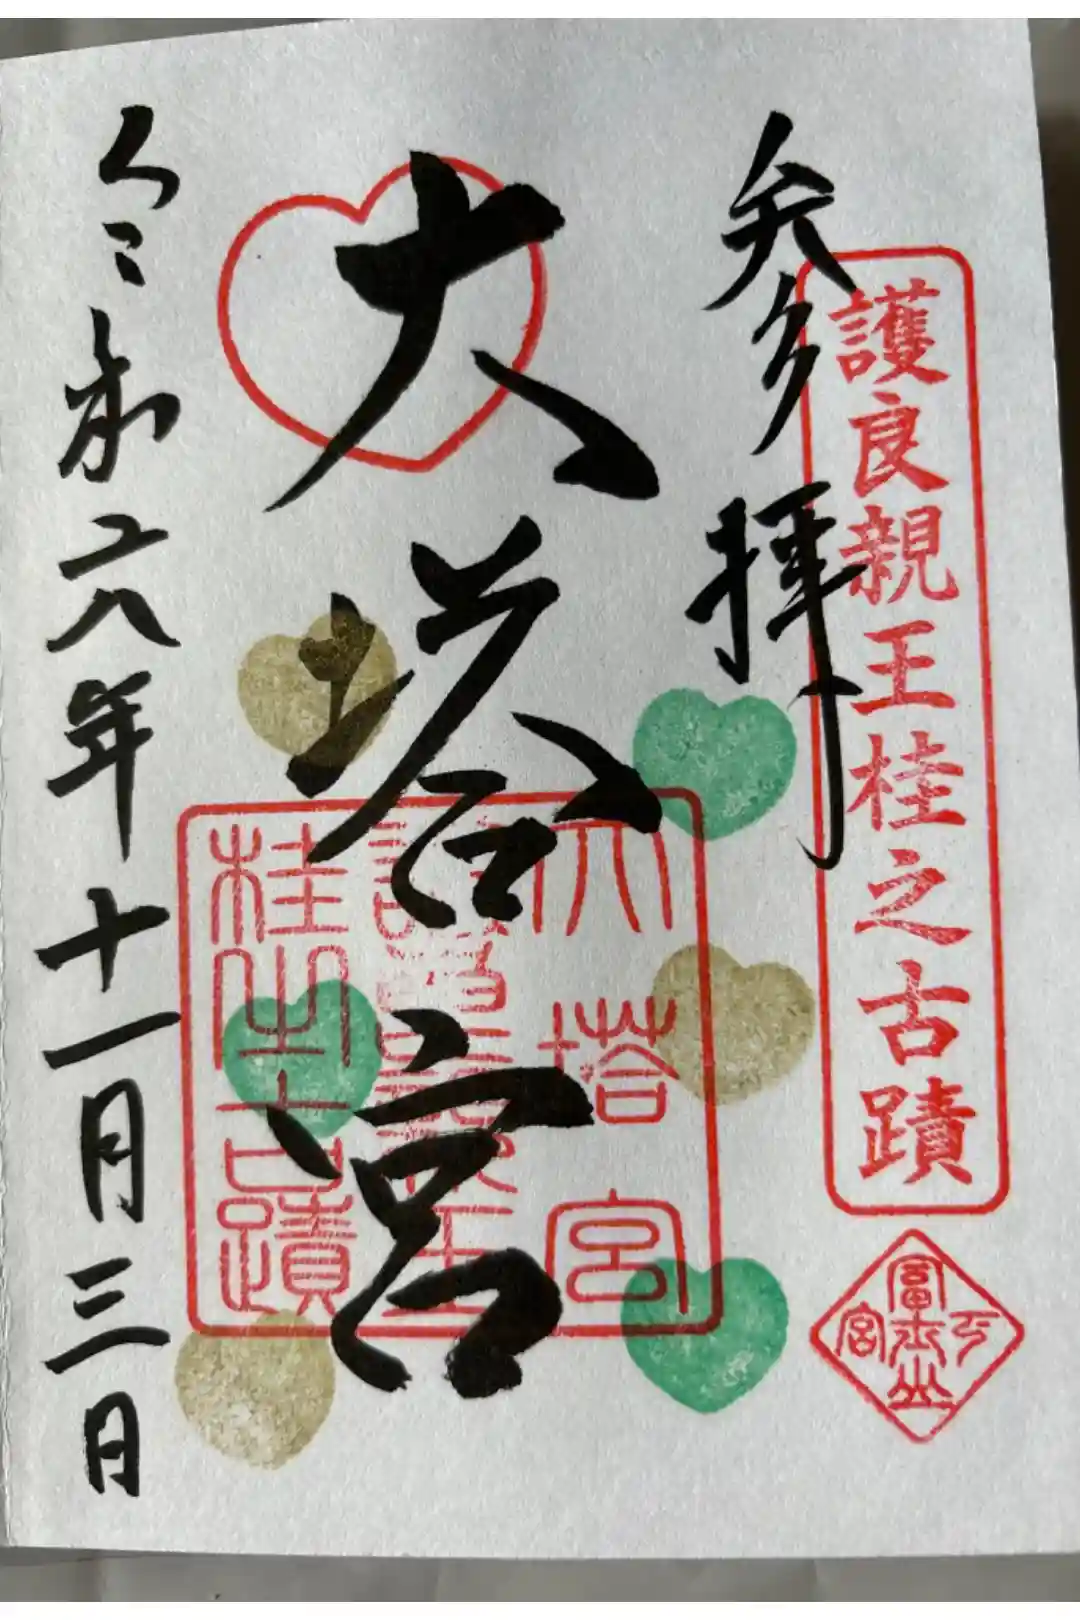 奉拝
護良親王桂之古蹟
大塔宮
大塔宮
護良親王
桂之古蹟
令和六年十一月三日